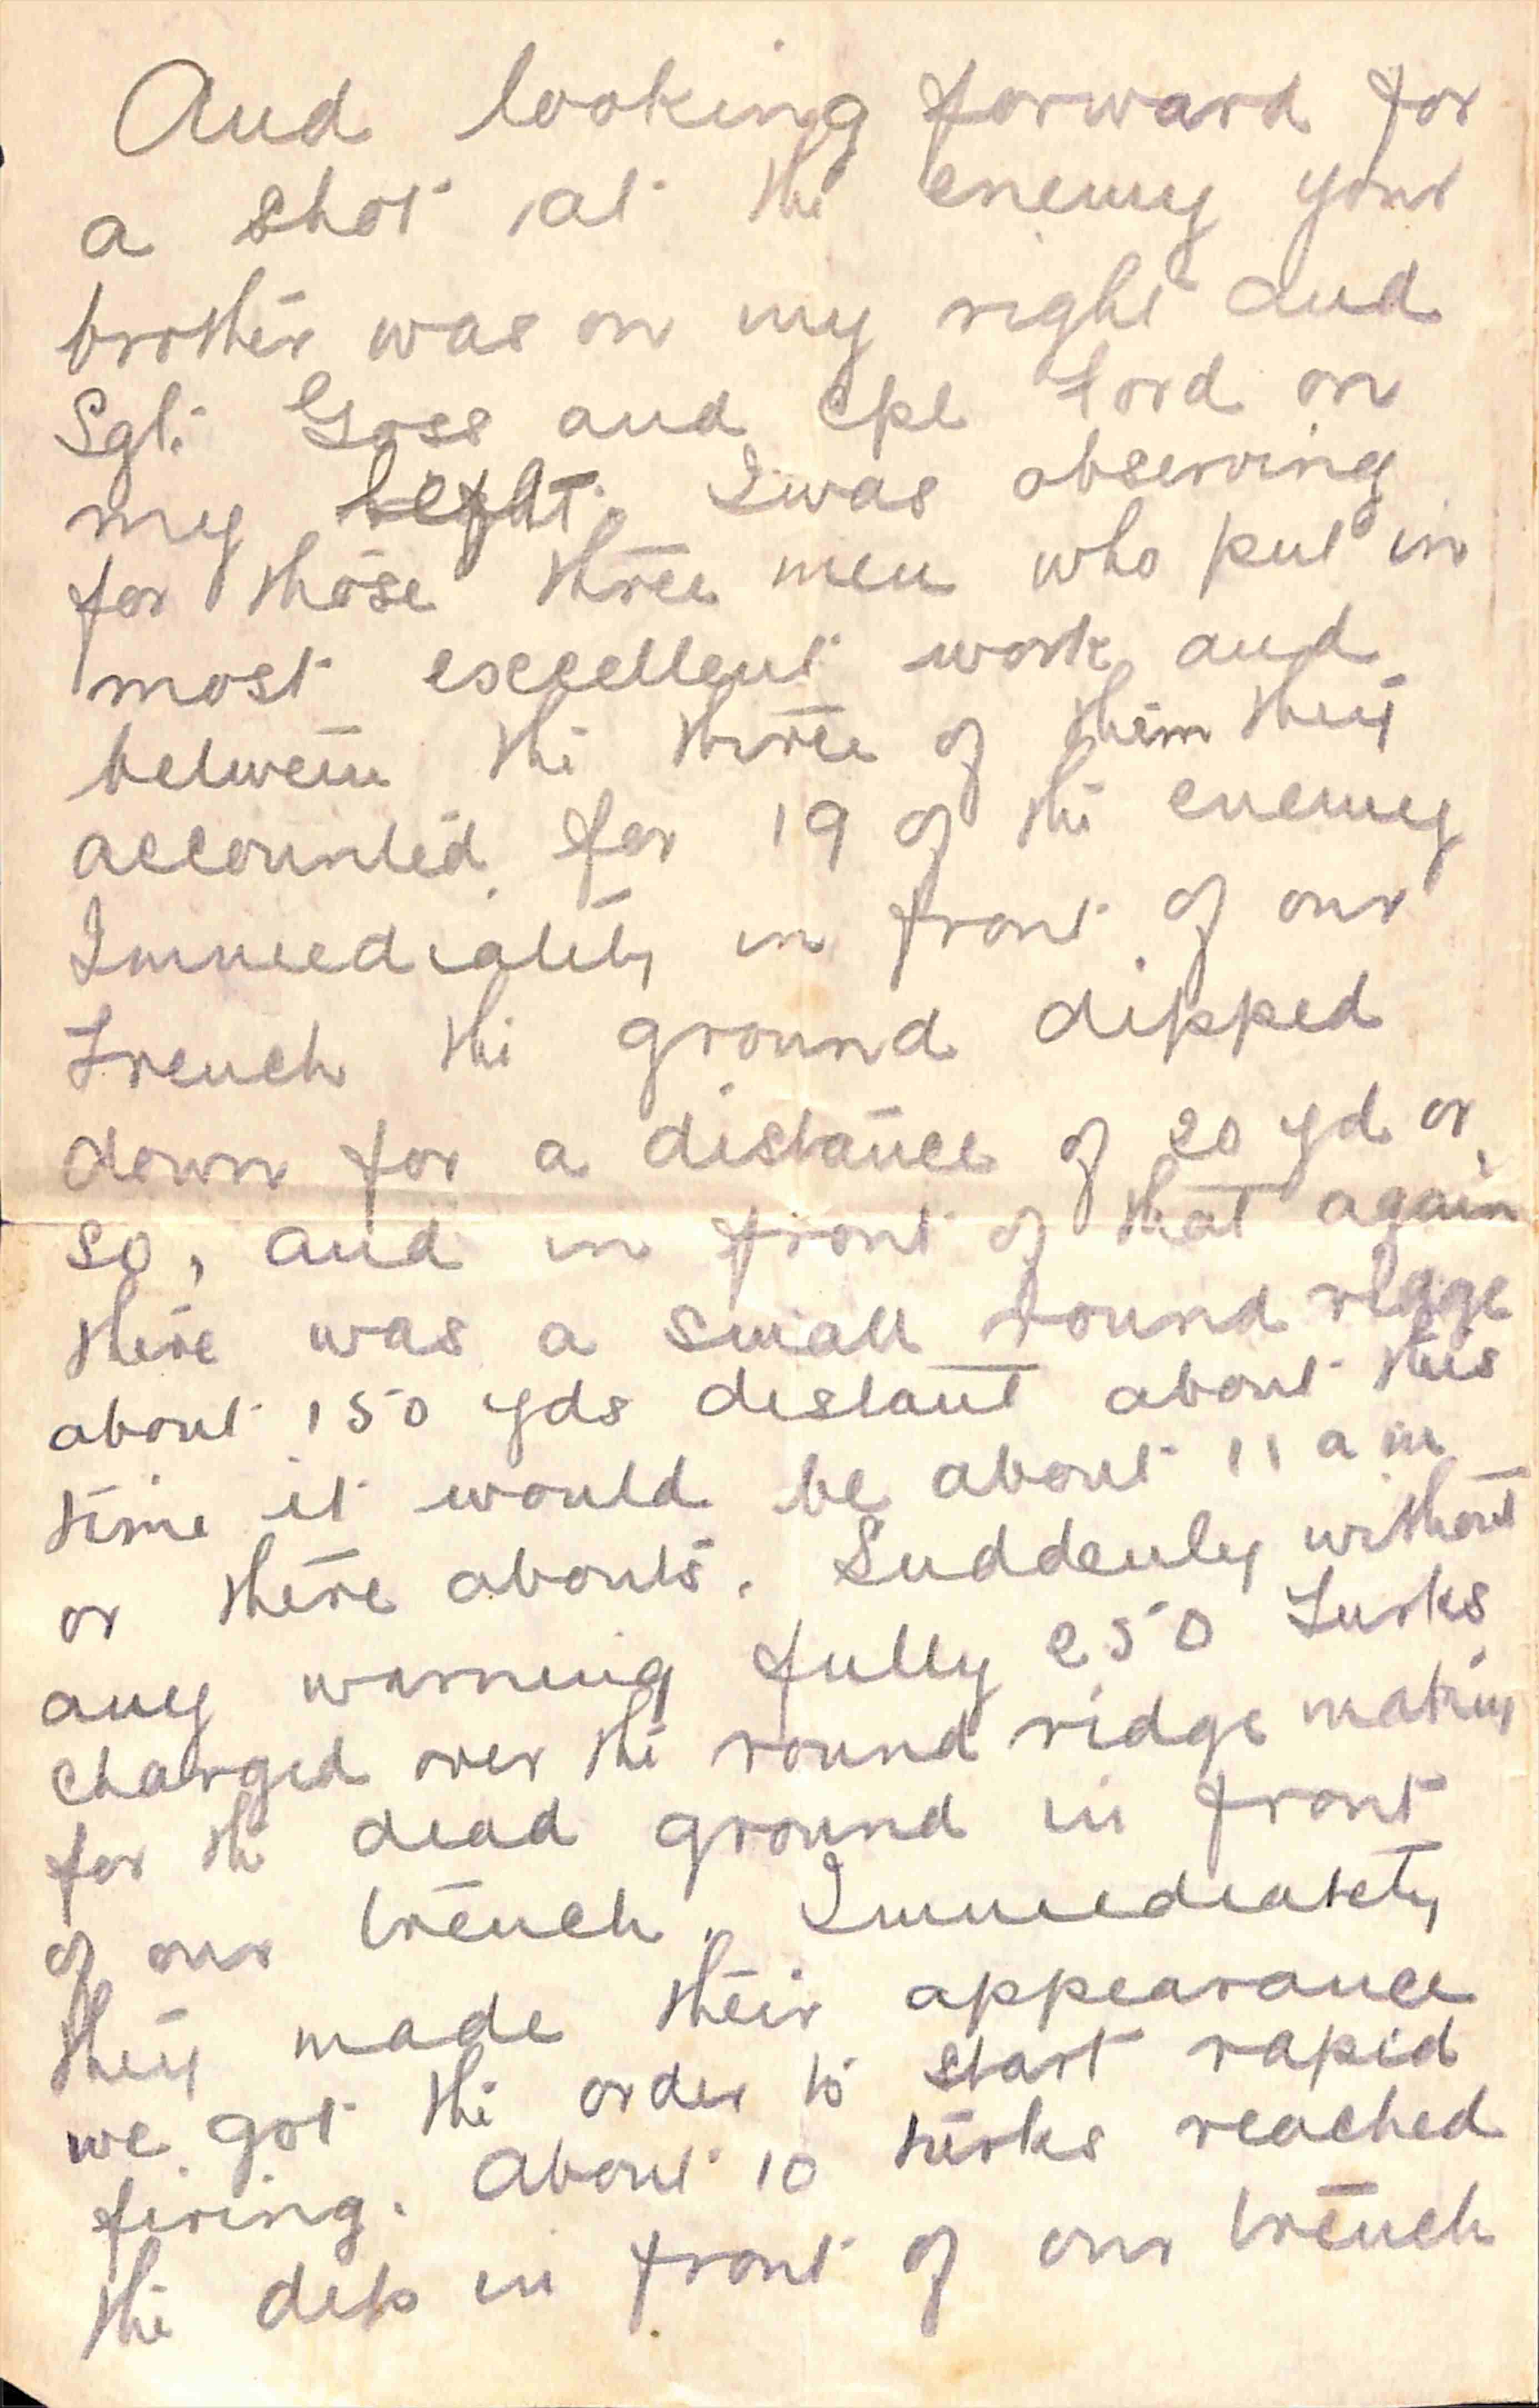 And looking forward for
a shot at the enemy your
brother was on my right and
Sgt. Goss and Cpl Ford on
my left. I was observing
for those three men who put in
most excellent work and
between the three of them they
accounted for 19 of the enemy
Immediately in front of our
Trench the ground dipped
down for a distance of 20 yd or
so, and in front of that again
there was a small round ridge
about 150 yds distant about this
time it would be about 11 am
or there abouts. Suddenly without
any warning fully 250 Turks
charged over the round ridge making
for th dead ground in front
of our trench. Immediately
they made their appearance
we got the order to start rapid
firing. About 10 turks reached
the dip in front of our trench